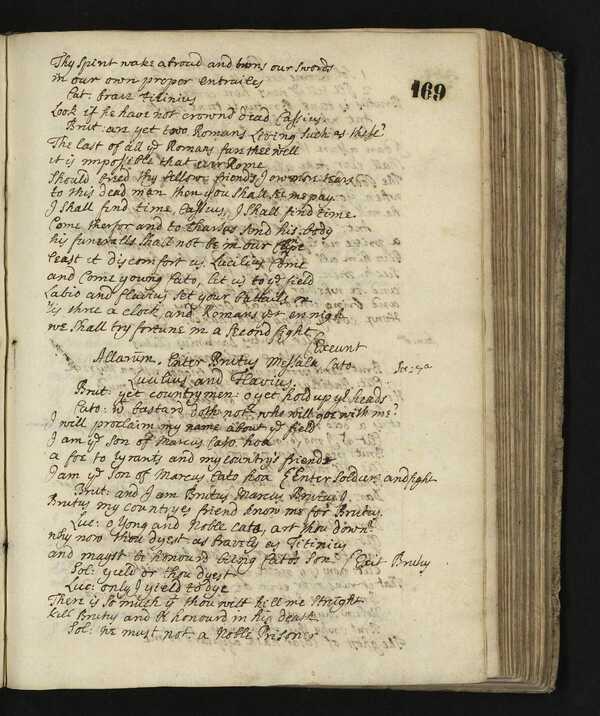 169
Thy spirit walks abroad and turns our swords
in our own proper entrailes
Cat: brave Titinius
Look if he have not crownd dead Cassius.
Brut: are yet two Romans Living such as these?
The last of all ye Romans fare thee well
it is impossible that ever Rome
should breed thy fellow friends I ow more tears
to this dead man then you shall see me pay
I shall find time, Cassius, I shall find time
Come therfor and to Tharsus send his body
his funeralls shall not be in our
least it discomfort us. Lucilius come
and Come young Cato, let us to ye field
Labio and flavius set your battails on
tis three a clock and Romans yet ere night
we shall try fortune in a second fight
Exeunt
Allarum. Enter Brutus Messala Cato
Lucilius and Flavius.
Brut: yet countrymen: o yet hold up yr heads
Cato: wt bastard doth not? who will goe with me?
I will proclaim my name about ye field
I am ye Son of Marcus Cato hoa
a foe to tyrants and my country's friend
I am ye Son of Marcus Cato hoa Enter Soldiers and fight
Brut: and I am Brutus Marcus Brutus I.
Brutus my countryes friend know me for Brutus.
Luc: o Yong and Noble Cato, art thou down?
why now thou dyest as bravely as Titinius
and mayst be honourd being Cato's Son. Exit Brutus
Sol: yield or thou dyest
Luc: only I yield to dye
There is so much yt thou wilt kill me streight
kill Brutus and be honourd in his death
Sol: we must not. a Noble Prisoner